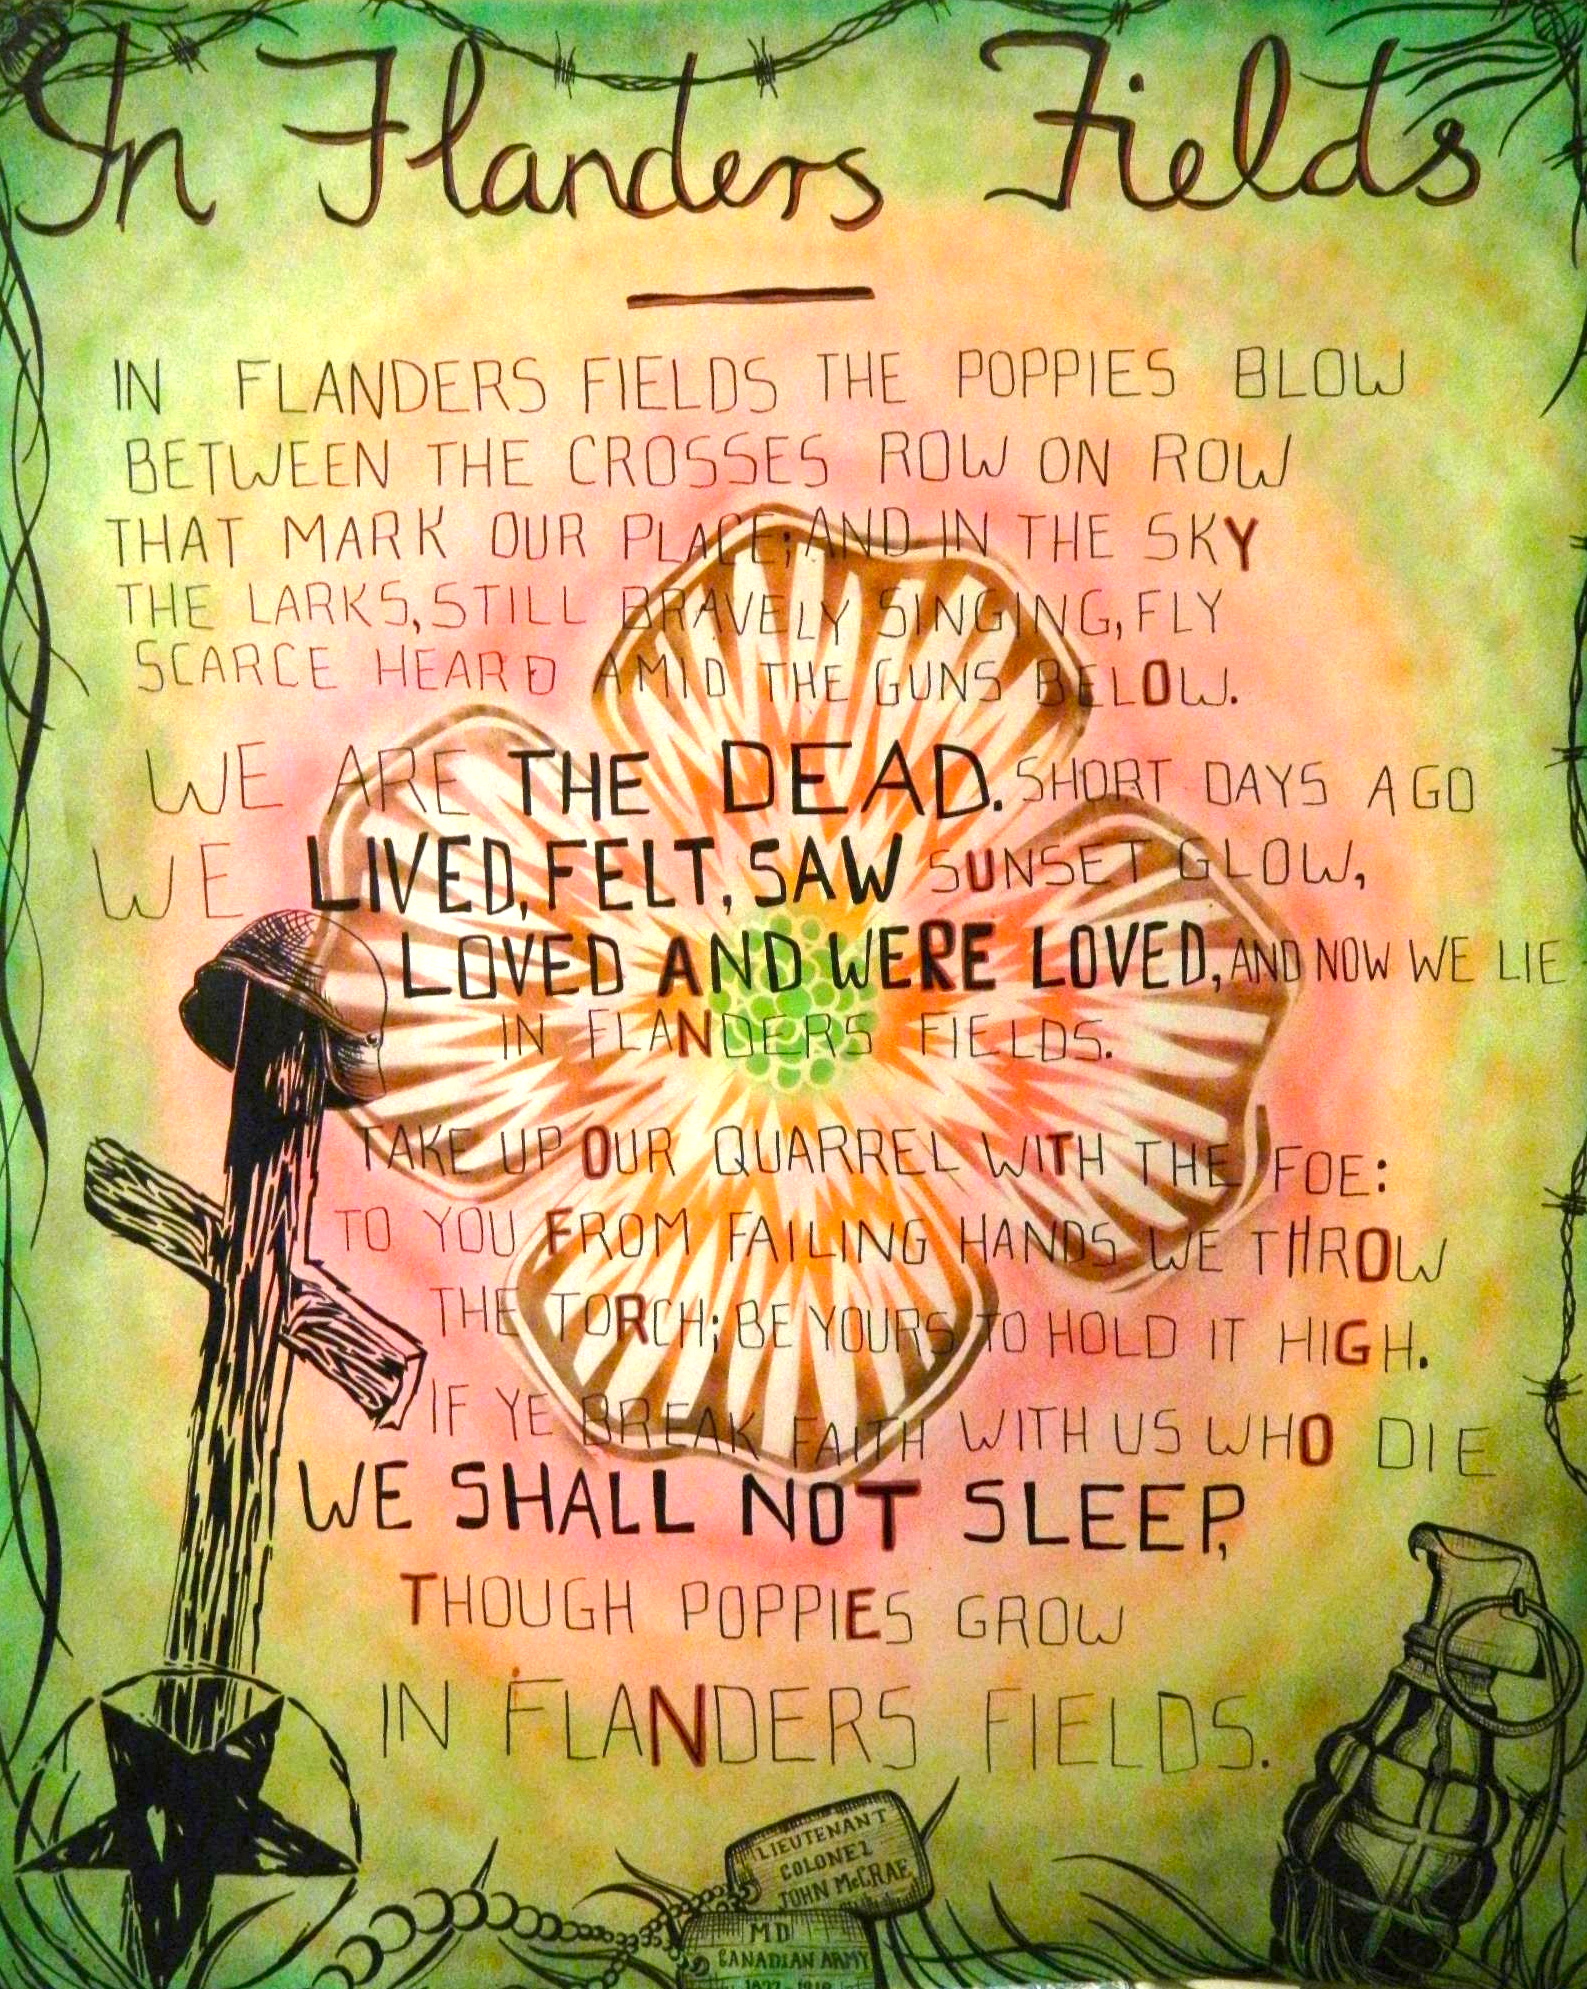 In Flanders Fields
IN FLANDERS FIELDS THE POPPIES BLOW
BETWEEN THE CROSSES ROW ON ROW
THAT MARK OUR PLACE; AND IN THE SKY
THE LARKS, STILL BRAVELY SINGING, FLY
SCARCE HEARD AMID THE GUNS BELOW.
WE ARE THE DEAD. SHORT DAYS AGO
WE LIVED, FELT, SAW SUNSET GLOW,
LOVED AND WERE LOVED, AND NOW WE LIE
IN FLANDERS FIELDS.
TAKE UP OUR QUARREL WITH THE FOE:
TO YOU FROM FAILING HANDS WE THROW
THE TORCH; BE YOURS TO HOLD IT HIGH.
IF YE BREAK FAITH WITH US WHO DIE
WE SHALL NOT SLEEP,
THOUGH POPPIES GROW
IN FLANDERS FIELDS.
LIEUTENANT
COLONEL
JOHN McCRAE
MD
CANADIAN ARMY